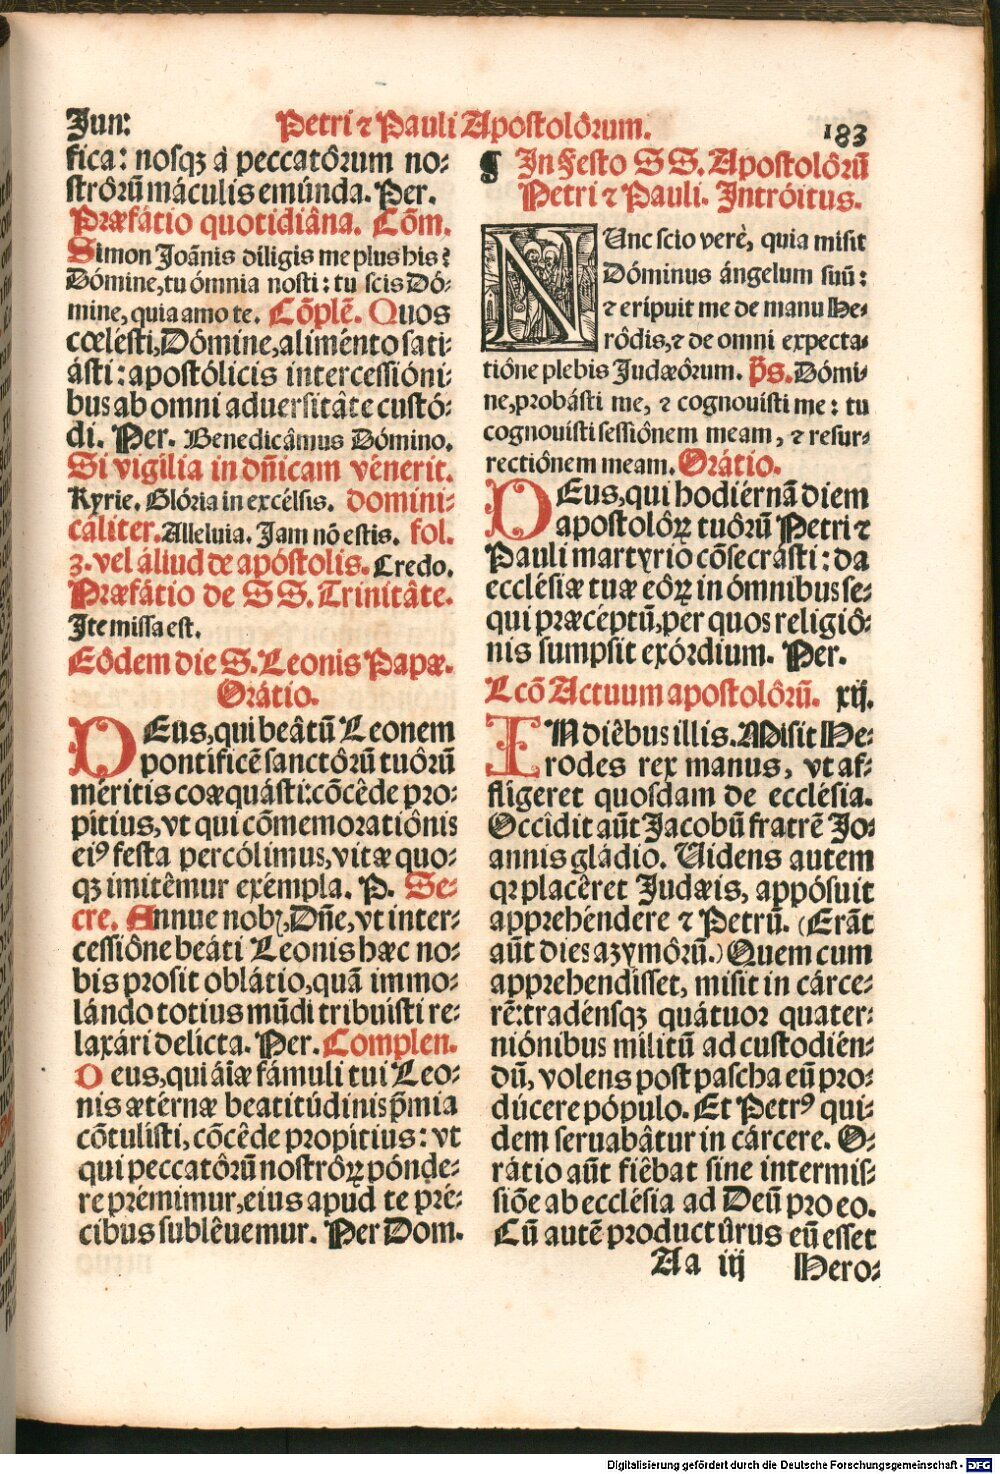 Jun: Petri ⁊ Pauli Apostolôrum. 183
fica: nosqꝫ à peccatôrum no⸗
strôrū máculis emúnda. Per.
Præfátio quotidiâna. Cōm.
Simon Joânis diligis me plus his?
Dómine, tu ómnia nosti: tu scis Dó⸗
mine, quia amo te. Cōplē. Quos
cœlésti, Dómine, aliménto sati⸗
ásti: apostólicis intercessióni⸗
bus ab omni aduersitâte custó⸗
di. Per. Benedicâmus Dómino.
Si vigília in dñicam vénerit.
Kyrie. Glória in excélsis. domini⸗
cáliter. Alleluia. Jam nō estis. fol.
3. vel áliud de apóstolis. Credo.
Præfátio de SS. Trinitâte.
Ite missa est.
Eôdem die S. Leonis Papæ.
Orátio.
DEus, qui beâtū Leonem
pontíficē sanctôrū tuôrū
méritis coæquásti: cōcêde pro⸗
pítius, vt qui cōmemoratiônis
eiꝰ festa percólimus, vitæ quo⸗
qꝫ imitêmur exémpla. P. Se⸗
cre. Annue nobꝭ, Dñe, vt inter⸗
cessiône beáti Leonis hæc no⸗
bis prosit oblátio, quā immo⸗
lándo totíus mūdi tribuísti re⸗
laxári delícta. Per. Complen.
Deus, qui áīæ fámuli tui Leo⸗
nis ætérnæ beatitúdinis p̄mia
cōtulísti, cōcêde propítius: vt
qui peccatôrū nostrôꝝ pónde⸗
re prémimur, eius apud te pré⸗
cibus sublêuemur. Per Dom.
¶ In Festo SS. Apostolôrū
Petri ⁊ Pauli. Intróitus.
NUnc scio verè, quia misit
Dóminus ángelum suū:
⁊ erípuit me de manu He⸗
rôdis, ⁊ de omni expecta⸗
tiône plebis Judæôrum. p̄s. Dómi⸗
ne, probásti me, ⁊ cognouísti me: tu
cognouísti sessiônem meam, ⁊ resur⸗
rectiônem meam. Orátio.
DEus, qui hodiérnā diem
apostolôꝝ tuôrū Petri ⁊
Pauli martýrio cōsecrásti: da
ecclésiæ tuæ eôꝝ in ómnibus se⸗
qui præcéptū, per quos religiô⸗
nis sumpsit exórdium. Per.
Lcō Actuum apostolôrū. xij.
IN diêbus illis. Misit He⸗
rodes rex manus, vt af⸗
flígeret quosdam de ecclésia.
Occîdit aūt Jacobū fratrē Jo⸗
annis gládio. Uidens autem
qꝛ placêret Judæis, appósuit
apprehéndere ⁊ Petrū. (Erāt
aūt dies azymôrū.) Quem cum
apprehendísset, misit in cárce⸗
rē: tradénsqꝫ quátuor quater⸗
niónibus mílitū ad custodién⸗
dū, volens post pascha eū pro⸗
dúcere pópulo. Et Petrꝰ qui⸗
dem seruabâtur in cárcere. O⸗
rátio aūt fiêbat sine intermis⸗
siōe ab ecclésia ad Deū pro eo.
Cū autē productûrus eū esset
Aa iij Hero⸗
Digitalisierung gefördert durch die Deutsche Forschungsgemeinschaft - DFG